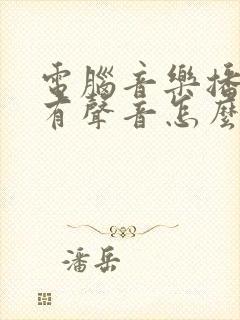 電腦音樂播
有聲音怎麼
潘岳